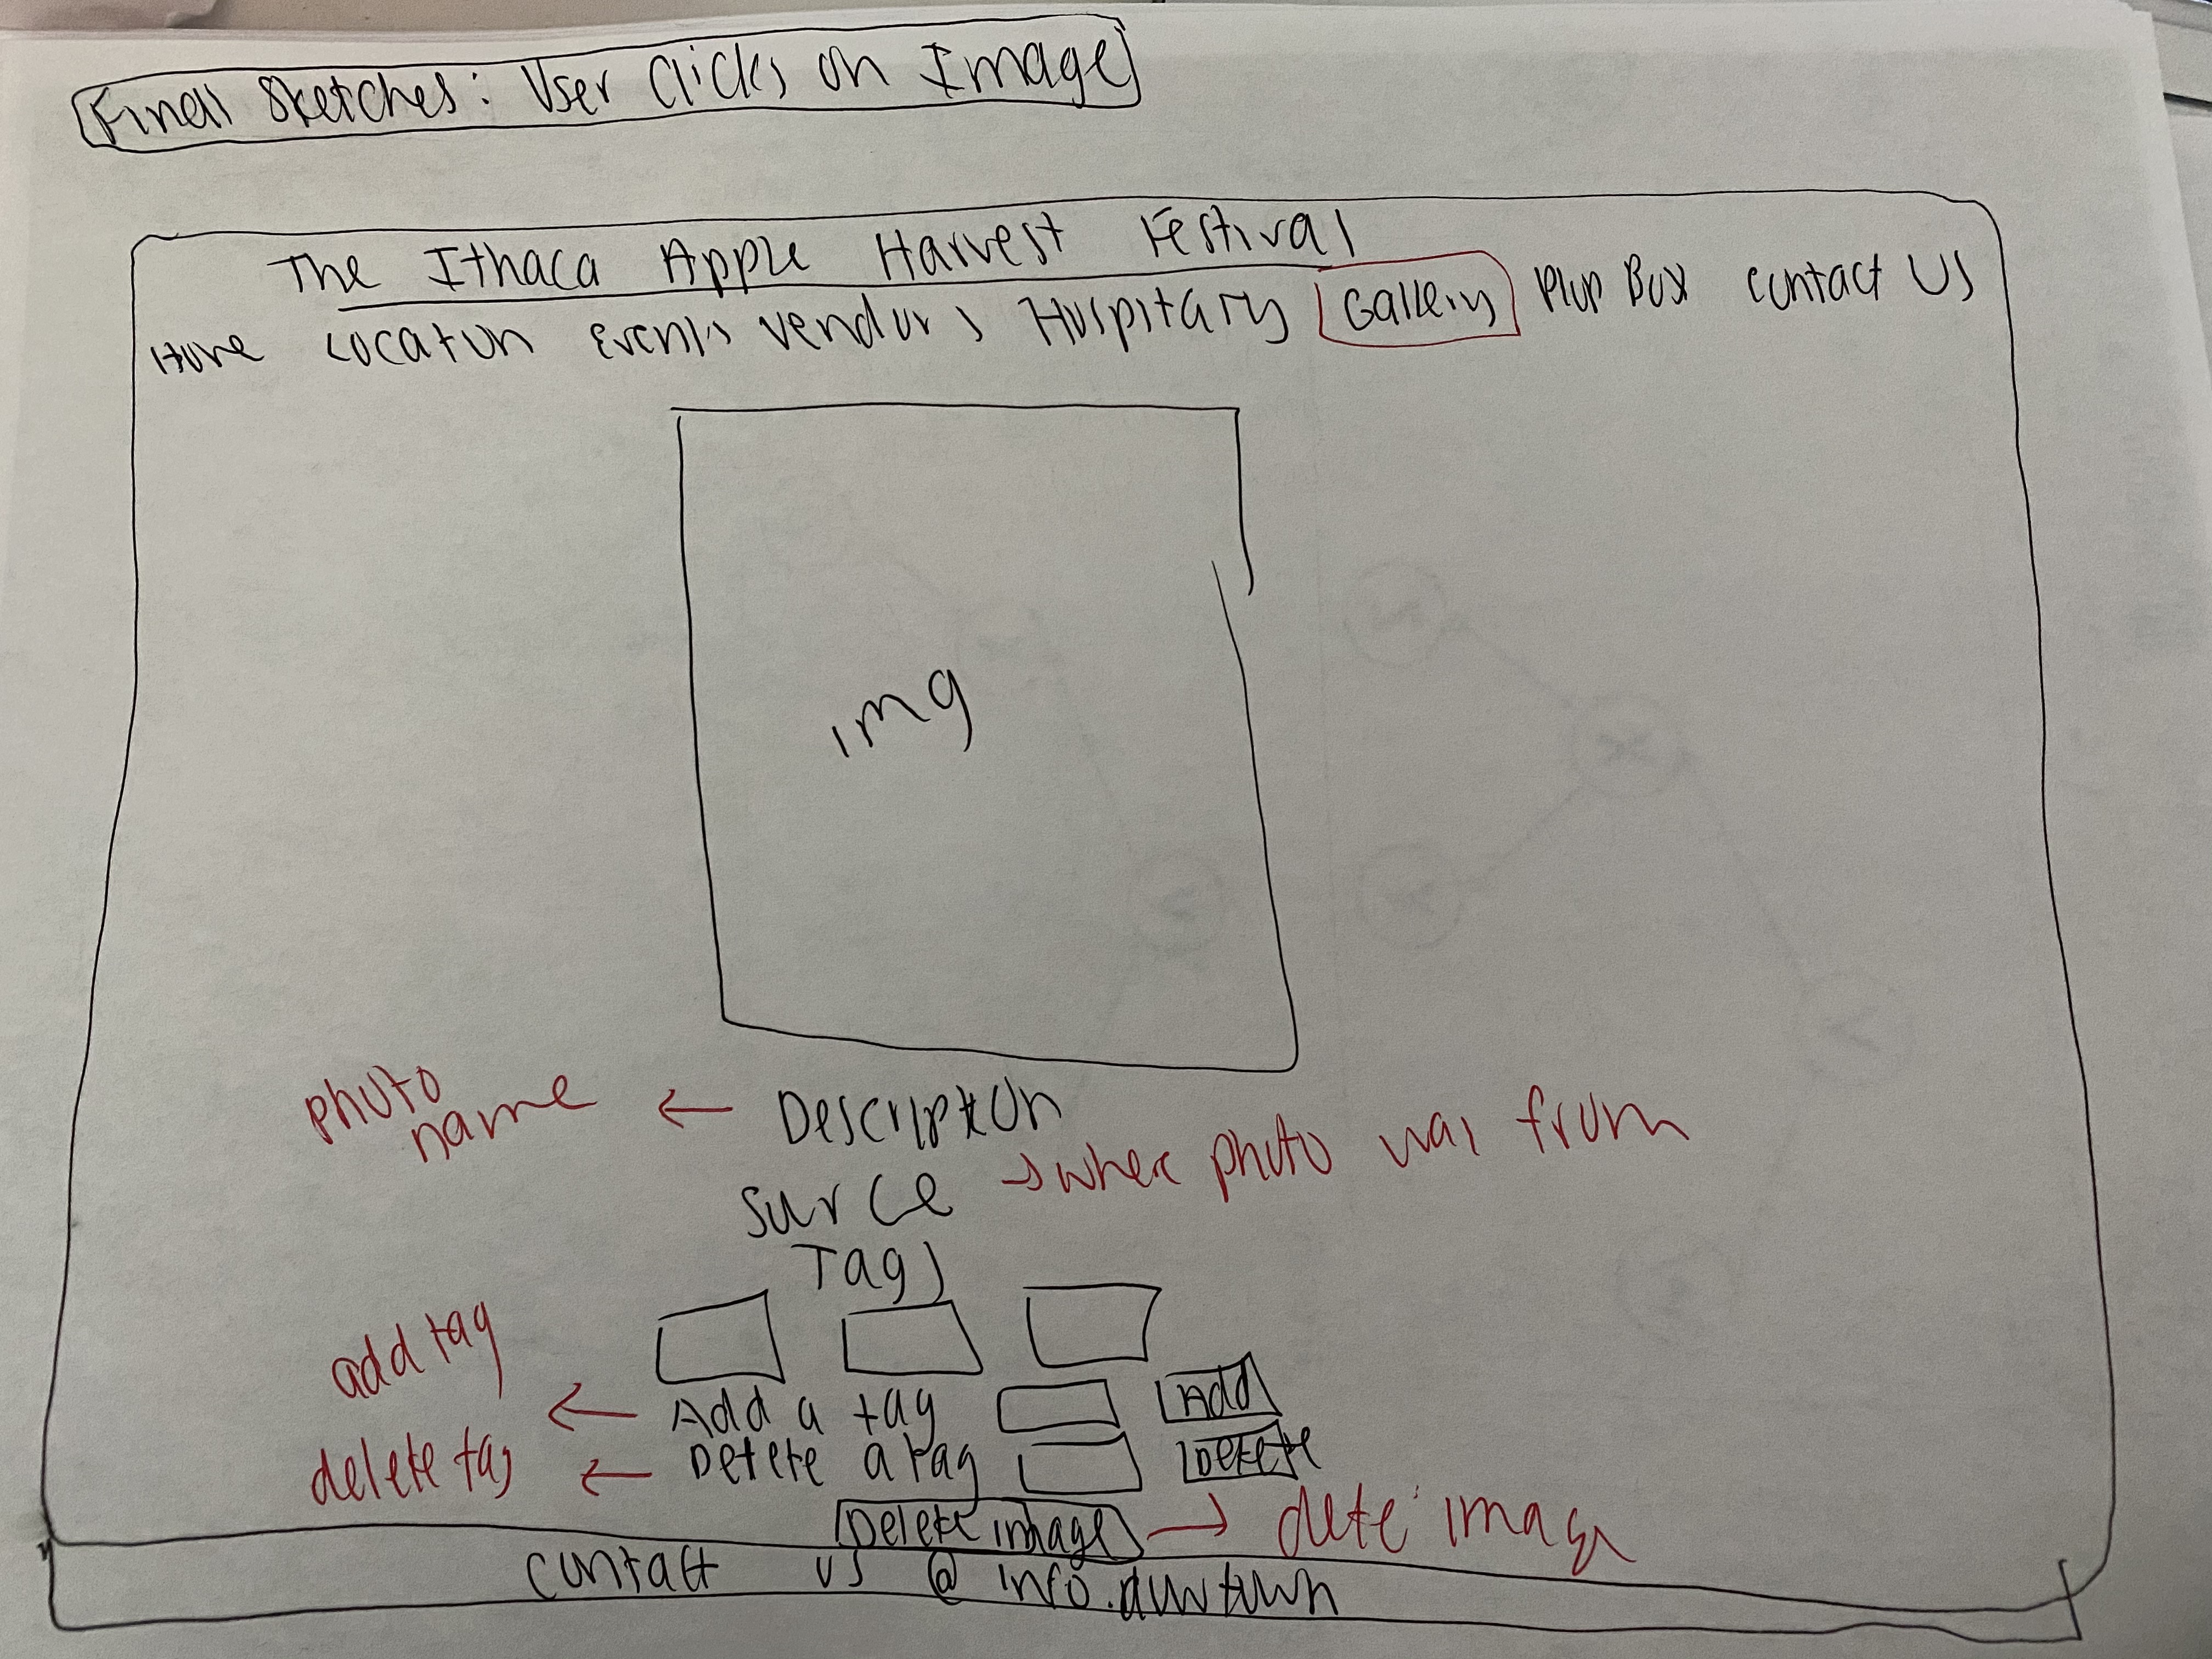 Final Sketches: User Clicks on Image
The Ithaca Apple Harvest Festival
Home Location Events Vendors Hospitary Gallery Plup Box Contact Us
img
photo name ← Description
Source → where photo was from
Tags
add tag ← Add a tag Add
delete tag ← Delete a tag Delete
Delete image → delte image
contact us @ info.downtown